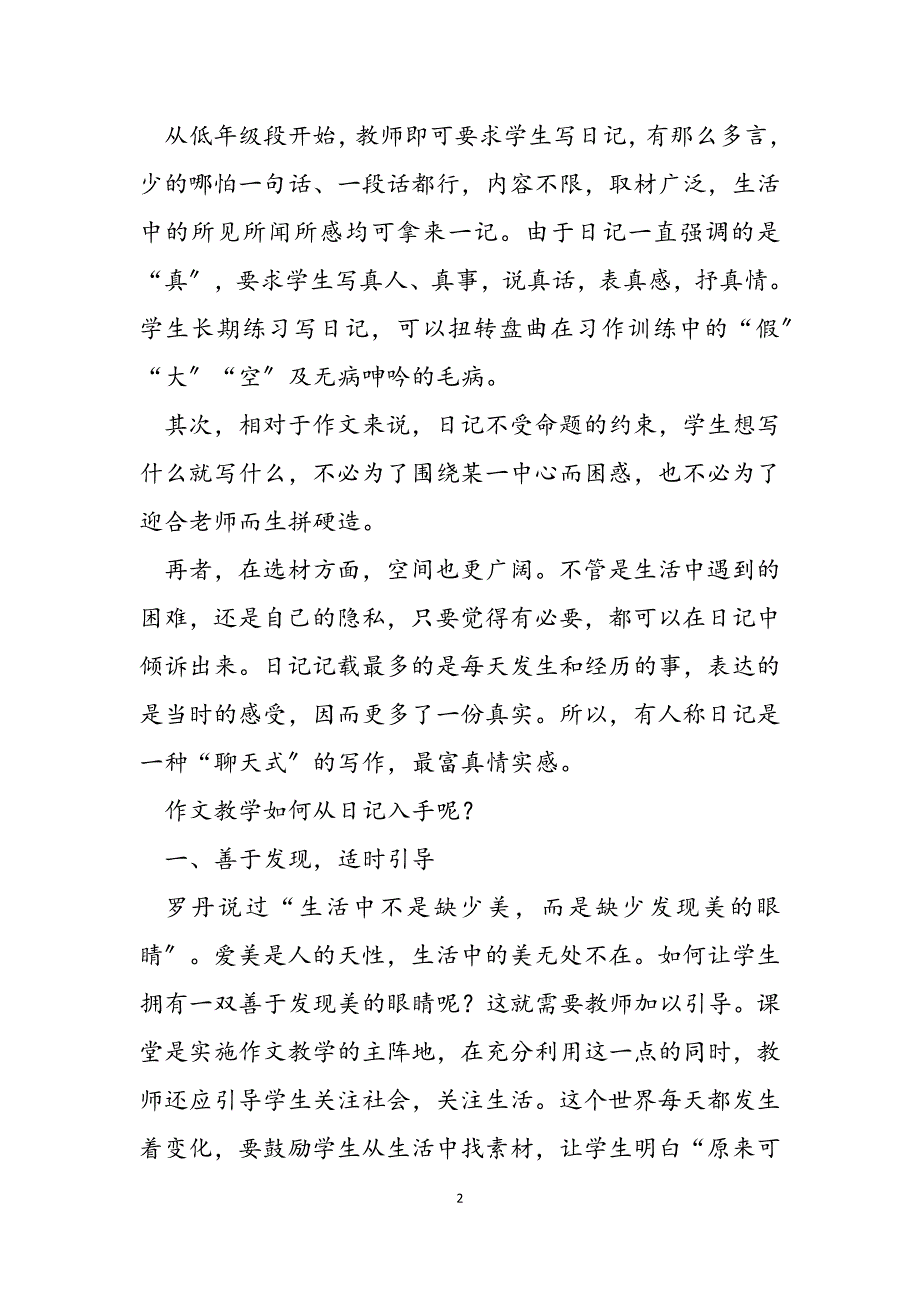 从低年级段开始，教师即可要求学生写日记，有那么多言，
少的哪怕一句话、一段话都行，内容不限，取材广泛，生活
中的所见所闻所感均可拿来一记。由于日记一直强调的是
“真〞，要求学生写真人、真事，说真话，表真感，抒真情。
学生长期练习写日记，可以扭转盘曲在习作训练中的“假〞
“大〞“空〞及无病呻吟的毛病。
其次，相对于作文来说，日记不受命题的约束，学生想写
什么就写什么，不必为了围绕某一中心而困惑，也不必为了
迎合老师而生拼硬造。
再者，在选材方面，空间也更广阔。不管是生活中遇到的
困难，还是自己的隐私，只要觉得有必要，都可以在日记中
倾诉出来。日记记载最多的是每天发生和经历的事，表达的
是当时的感受，因而更多了一份真实。所以，有人称日记是
一种“聊天式〞的写作，最富真情实感。
作文教学如何从日记入手呢？
一、善于发现，适时引导
罗丹说过“生活中不是缺少美，而是缺少发现美的眼
睛〞。爱美是人的天性，生活中的美无处不在。如何让学生
拥有一双善于发现美的眼睛呢？这就需要教师加以引导。课
堂是实施作文教学的主阵地，在充分利用这一点的同时，教
师还应引导学生关注社会，关注生活。这个世界每天都发生
着变化，要鼓励学生从生活中找素材，让学生明白“原来可
2